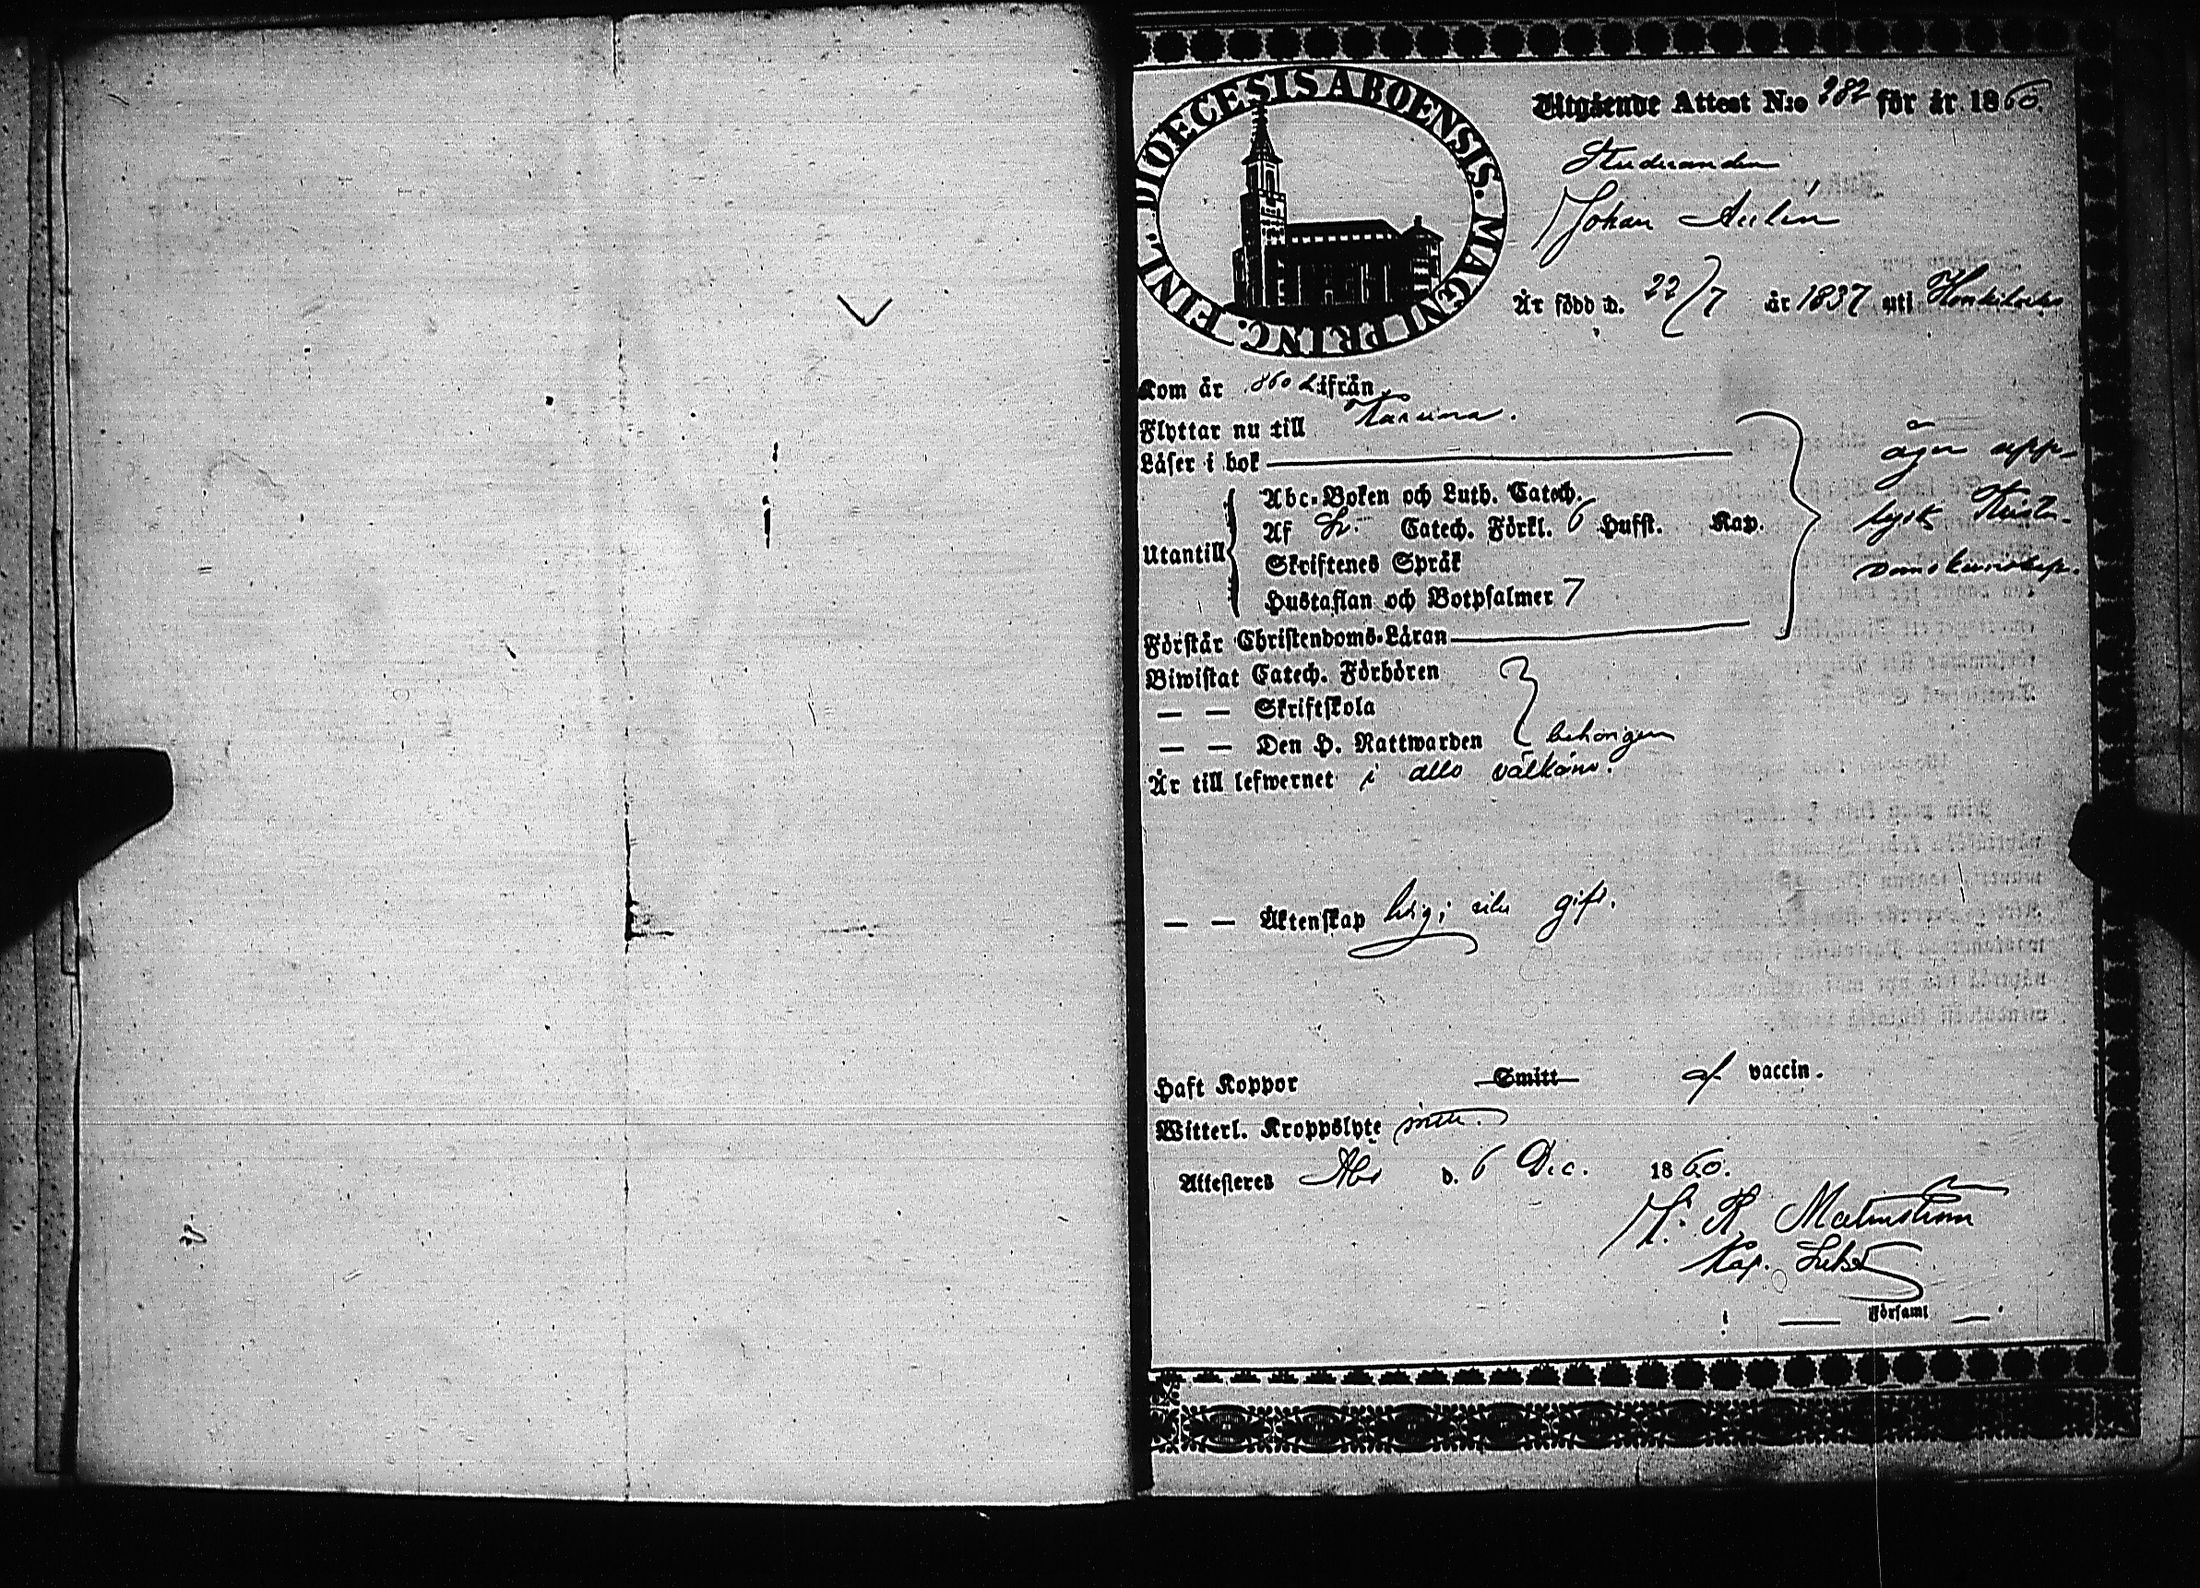 DIOECESIS ABOENSIS. MAGNI PRINC. FINL.
Utgående Attest N:o 282 för år 1860.
Studeranden
Johan Aulin
År född d. 22/7 år 1837 uti Honkilaks
Kom år 860 hifrån
Flyttar nu till Karuna.
Läser i bok
Abc-Boken och Luth. Catech.
Utantill
Af Sv. Catech. Förkl. 6 Hufst. Kap.
Skriftenes Språk
Hustaflan och Botpsalmer 7
äger upp-
lyst Kristen-
domskunskap.
Förstår Christendoms-Läran
Biwistat Catech. Förhören
— — Skriftskola
— — Den H. Nattwarden behörigen
Är till lefwernet i allo välkänd.
— — Äktenskap ledig; icke gift.
Haft Koppor Smitt af vaccin.
Witterl. Kroppslyte intet.
Attesteras Åbo d. 6 Dec. 1860.
K. R. Malmström
Kap.
Församl